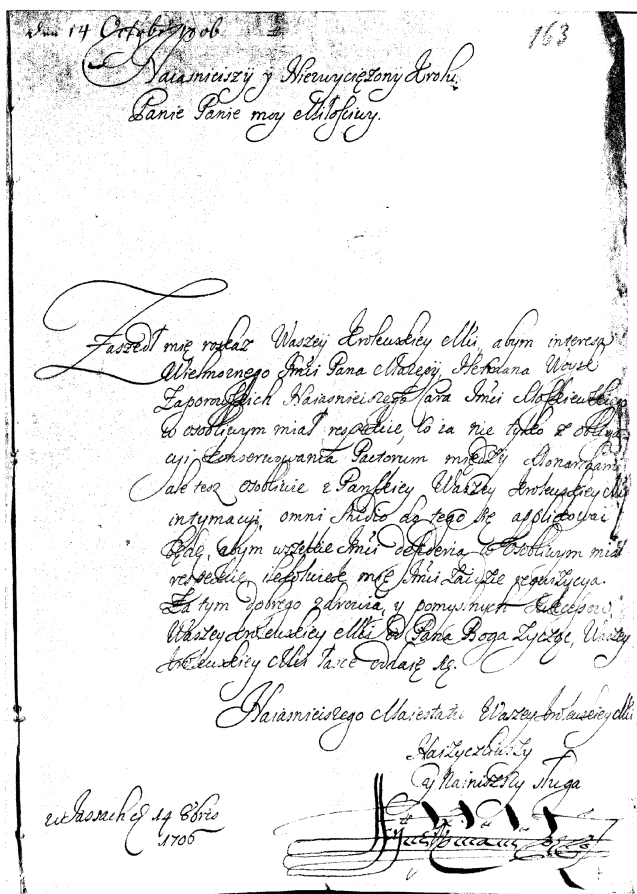 den 14 Octobris 1706
163
Naiasnieiszy y Niezwyciężony Krolu
Panie Panie moy Miłosciwy.
Zaszedł mię roskaz Waszey Krolewskiey Mśi, abym interesa
Wielmoznego Jmśi Pana Mazepy, Hetmana Woysk
Zaporowskich Naiasnieiszego Cara Jmśi Moskiewskiego
w osobliwym miał respekcie, to ia nie tylko z obliga
cyi konserwowania Pactorum między Monarchami
ale tesz osobliwie z Panskiey Waszey Krolewskiey Mśi
intymacyi, omni studio do tego się applikować
będę, abym wszelkie Jmśi desideria w osobliwym miał
respekcie, ilekolwiek mię Jmśi zaidzie requizycya.
Za tym dobrego zdrowia, y pomyslnych sukcesow
Waszey Krolewskiey Mśi od Pana Boga zyczęc, Waszey
Krolewskiey Mśi łasce oddaię się.
Naiasnieiszego Maiestatu Waszey Krolewskiey Mśi
Naizyczliwszy
y Nainiszszy sługa
w Jassach d 14 8bris
1706